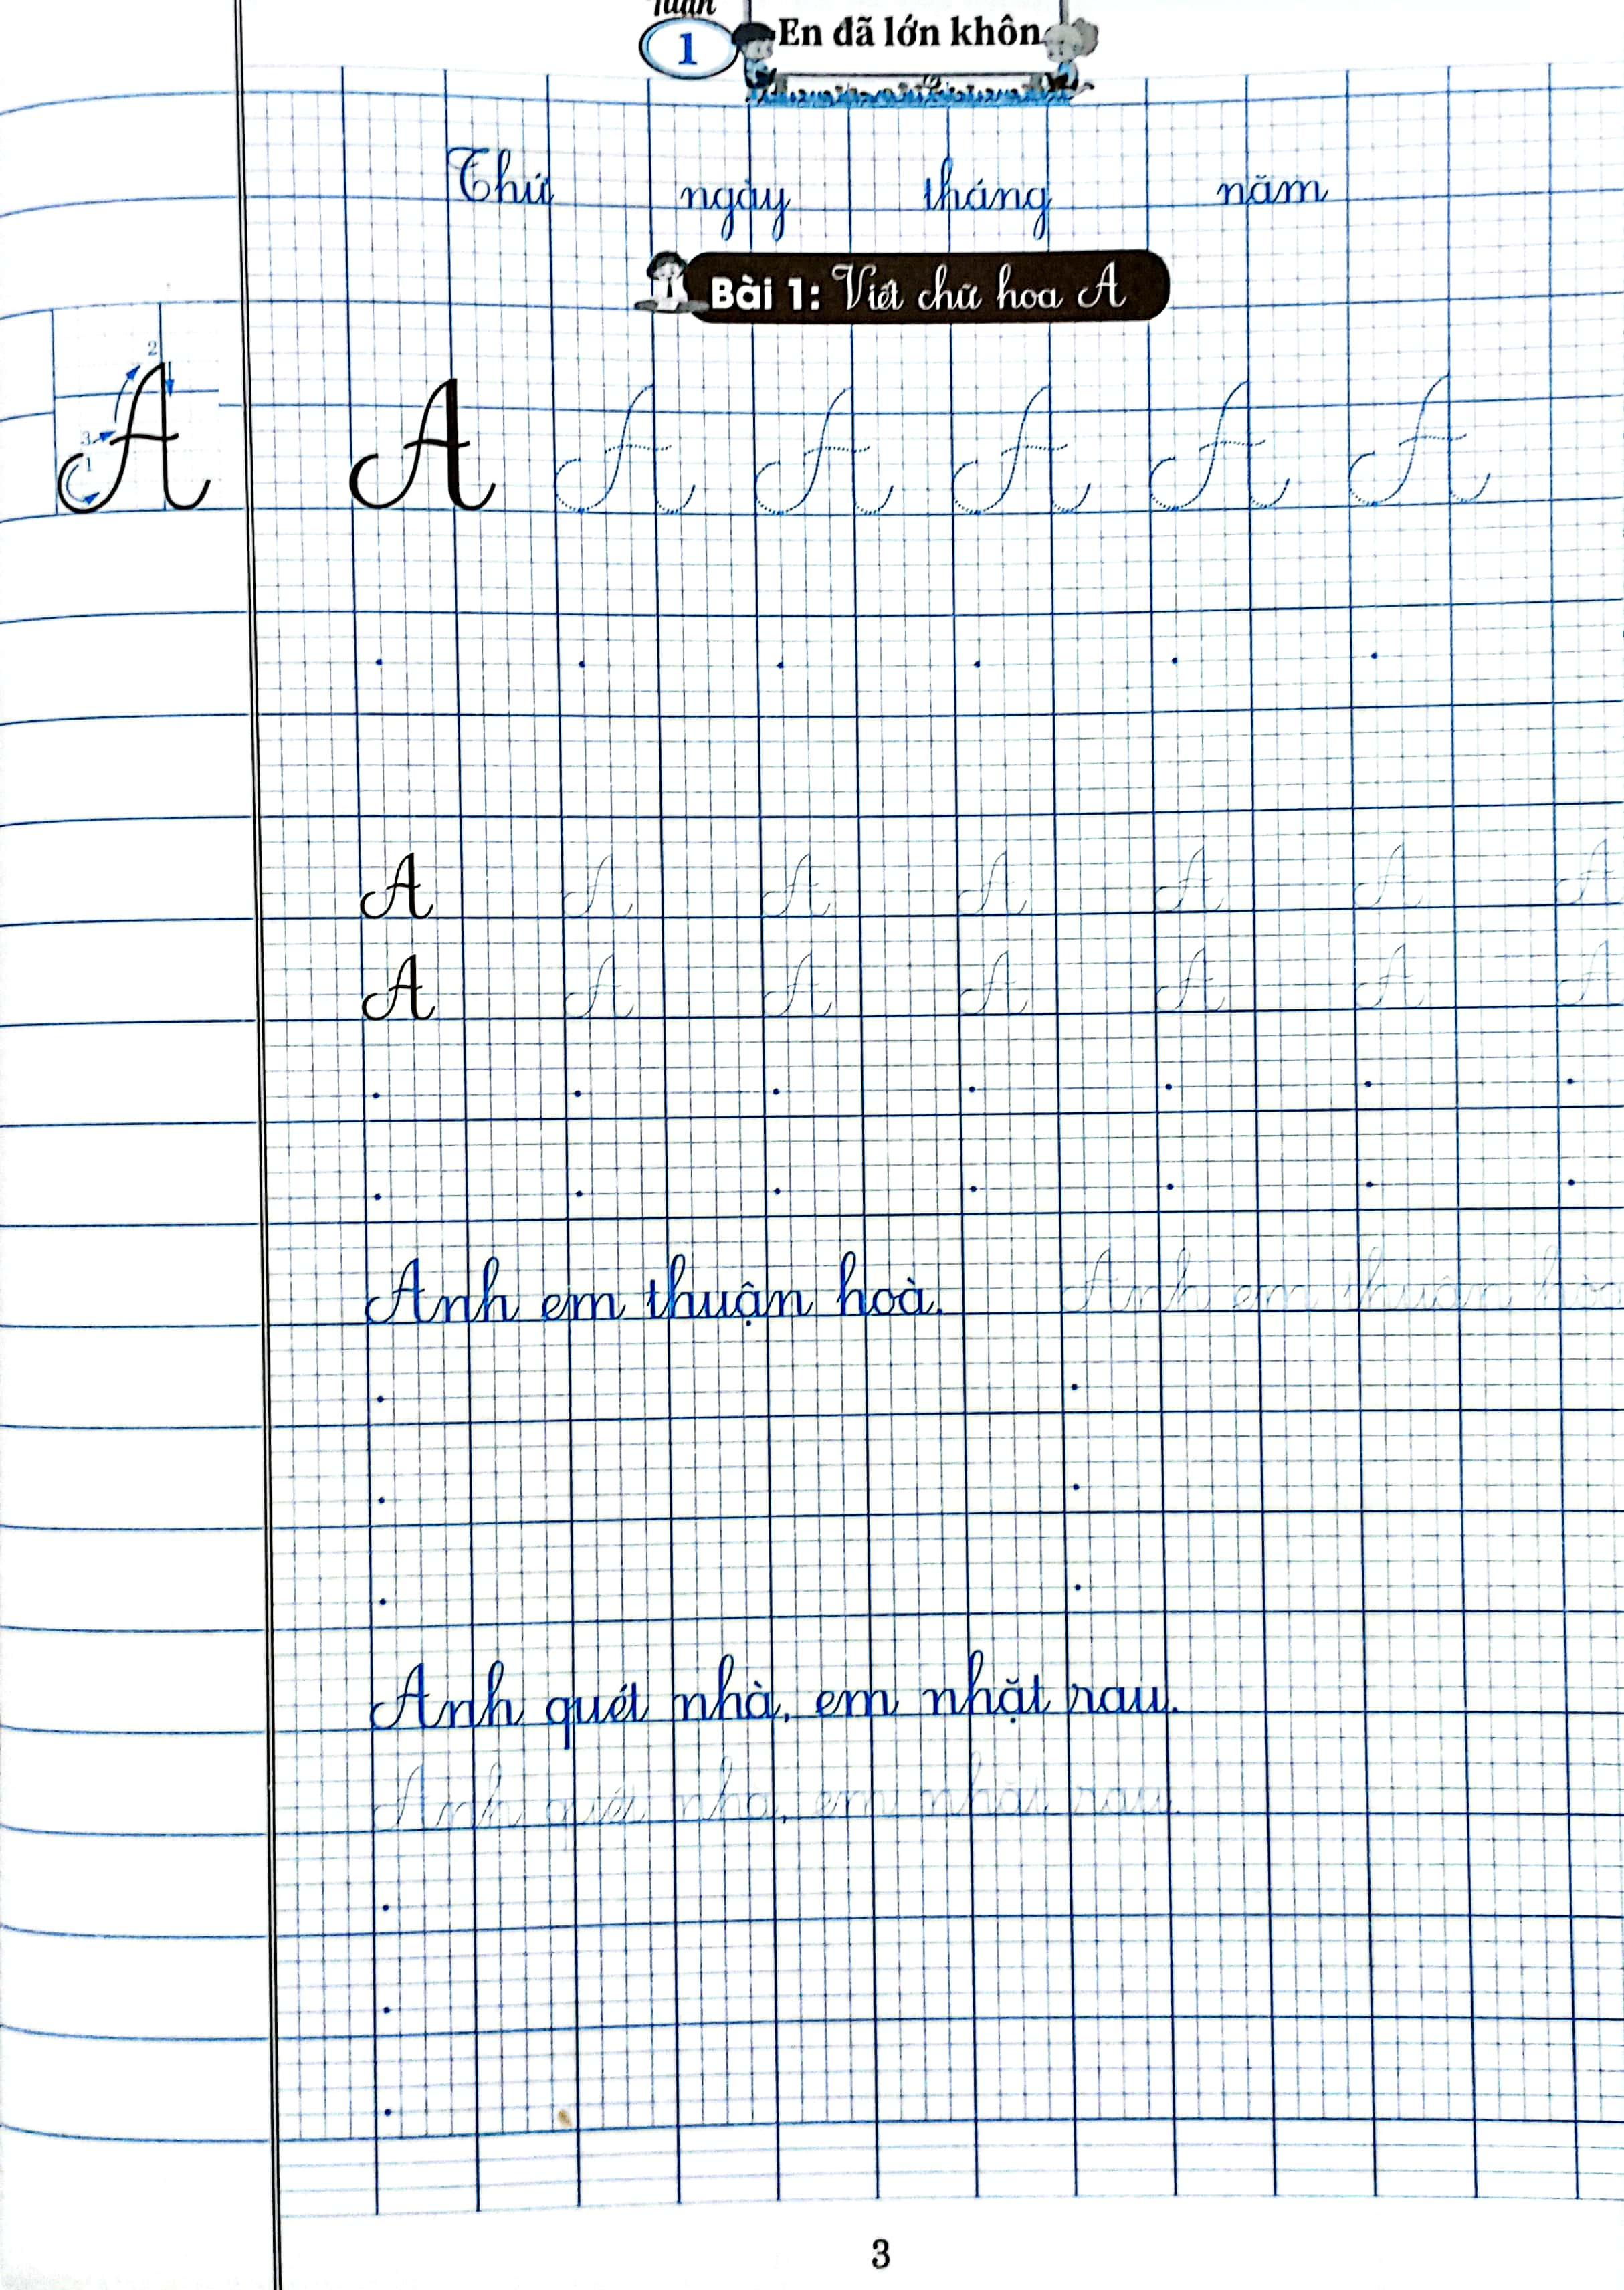 Tuần
1 En đã lớn khôn
Thứ ngày tháng năm
Bài 1: Viết chữ hoa A
2
3
1
A A A A A A A
A A A A A A A
A A A A A A A
Anh em thuận hoà. Anh em thuận hoà
Anh quét nhà, em nhặt rau.
Anh quét nhà, em nhặt rau.
3